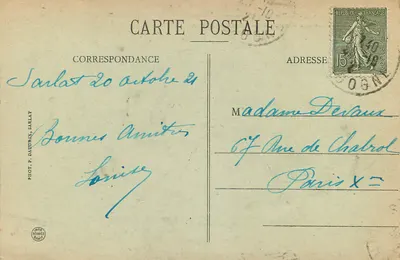 CARTE POSTALE
CORRESPONDANCE
ADRESSE
Sarlat 20 octobre 21
Bonnes Amitiés
Louise
Madame Devaux
67 Rue de Chabrol
Paris Xme
15
OGNE